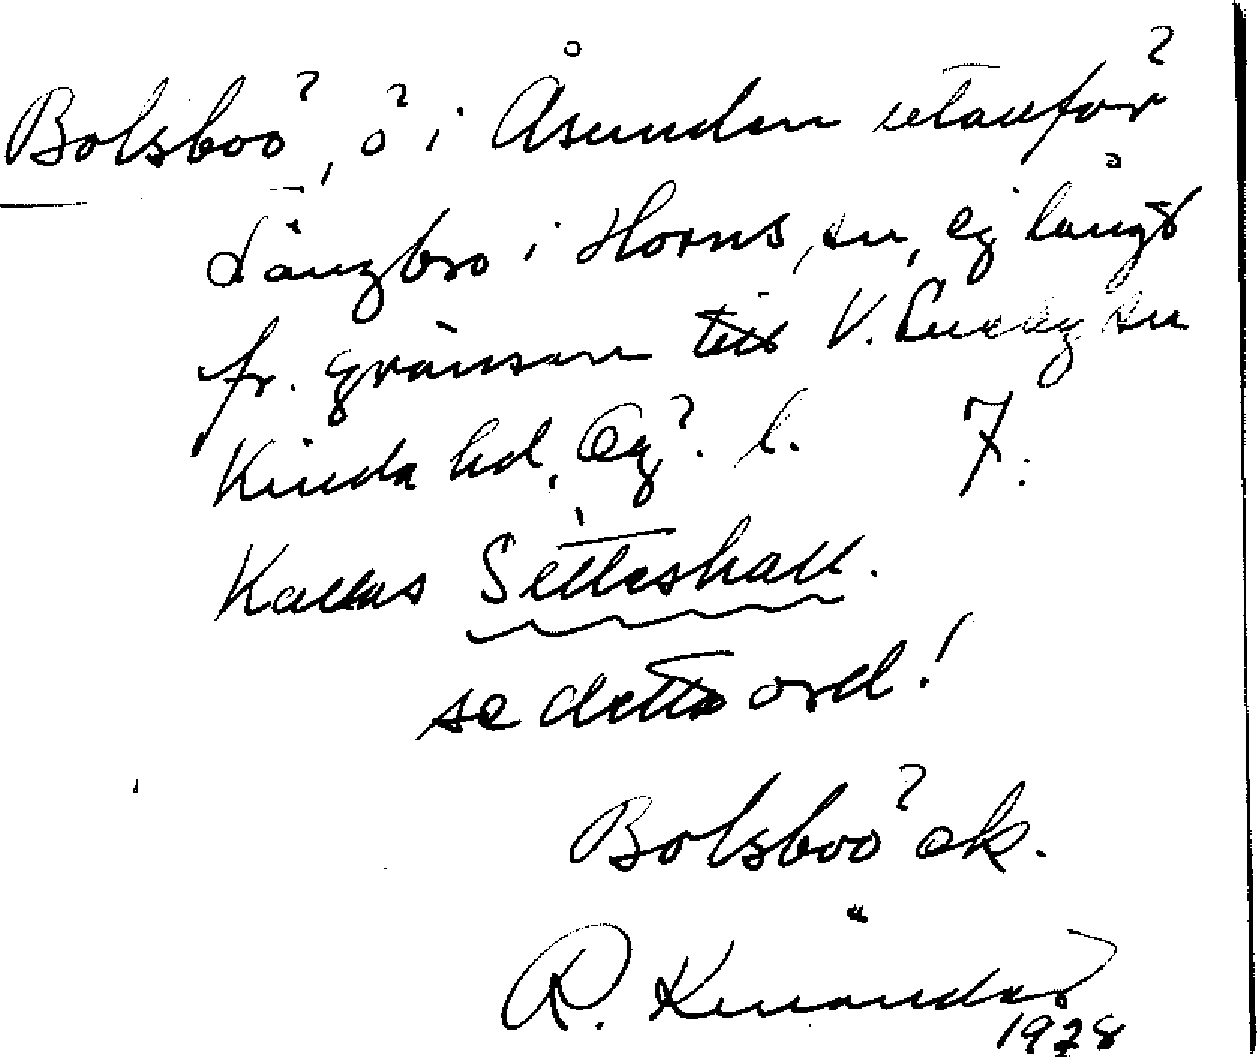 Bolsboö, ö i Åsunden utanför
Långbro i Horns sn, ej långt
fr. gränsen till V. Eneby sn
Kinda hd, Ög. l. 7.
Kallas Sitteshall.
se detta ord!
Bolsboö ek.
R.
1928